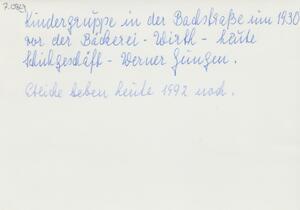 Kindergruppe in der Bachstraße um 1930
vor der Bäckerei - Wirth - heute
Schuhgeschäft - Werner Jungen.
leben heute 1992 noch.